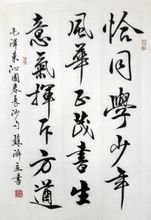 恰同學少年
風華正茂書生
意氣揮斥方遒
毛澤東沁園春長沙句蘇書